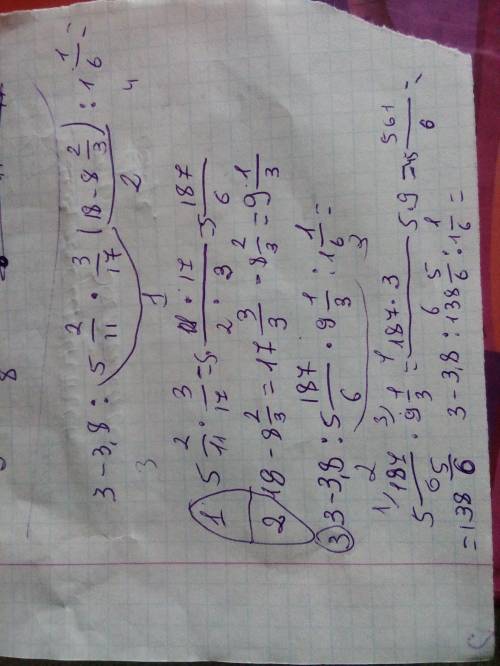 8
3 - 3,8 : 5 2/11 · 3/17 (18 - 8 2/3) : 1 1/6 =
3 1 2 4
1 5 2/11 · 3/17 = 5 11 · 17 / 2 · 3 = 5 187/6
2 18 - 8 2/3 = 17 3/3 - 8 2/3 = 9 1/3
3 3 - 3,8 : 5 187/6 · 9 1/3 : 1 1/6 =
2 3
1) 5 187/6 · 9 1/3 = 187 · 3 / 5 · 9 = 45 561/6 =
= 138 5/6 3 - 3,8 : 138 5/6 : 1 1/6 =